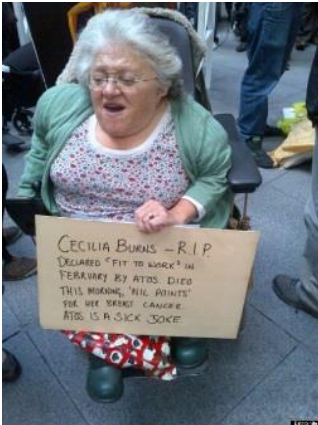 CECILIA BURNS - R.I.P.
DECLARED "FIT TO WORK" IN
FEBRUARY BY ATOS. DIED
THIS MORNING, 'NIL POINTS'
FOR HER BREAST CANCER.
ATOS IS A SICK JOKE